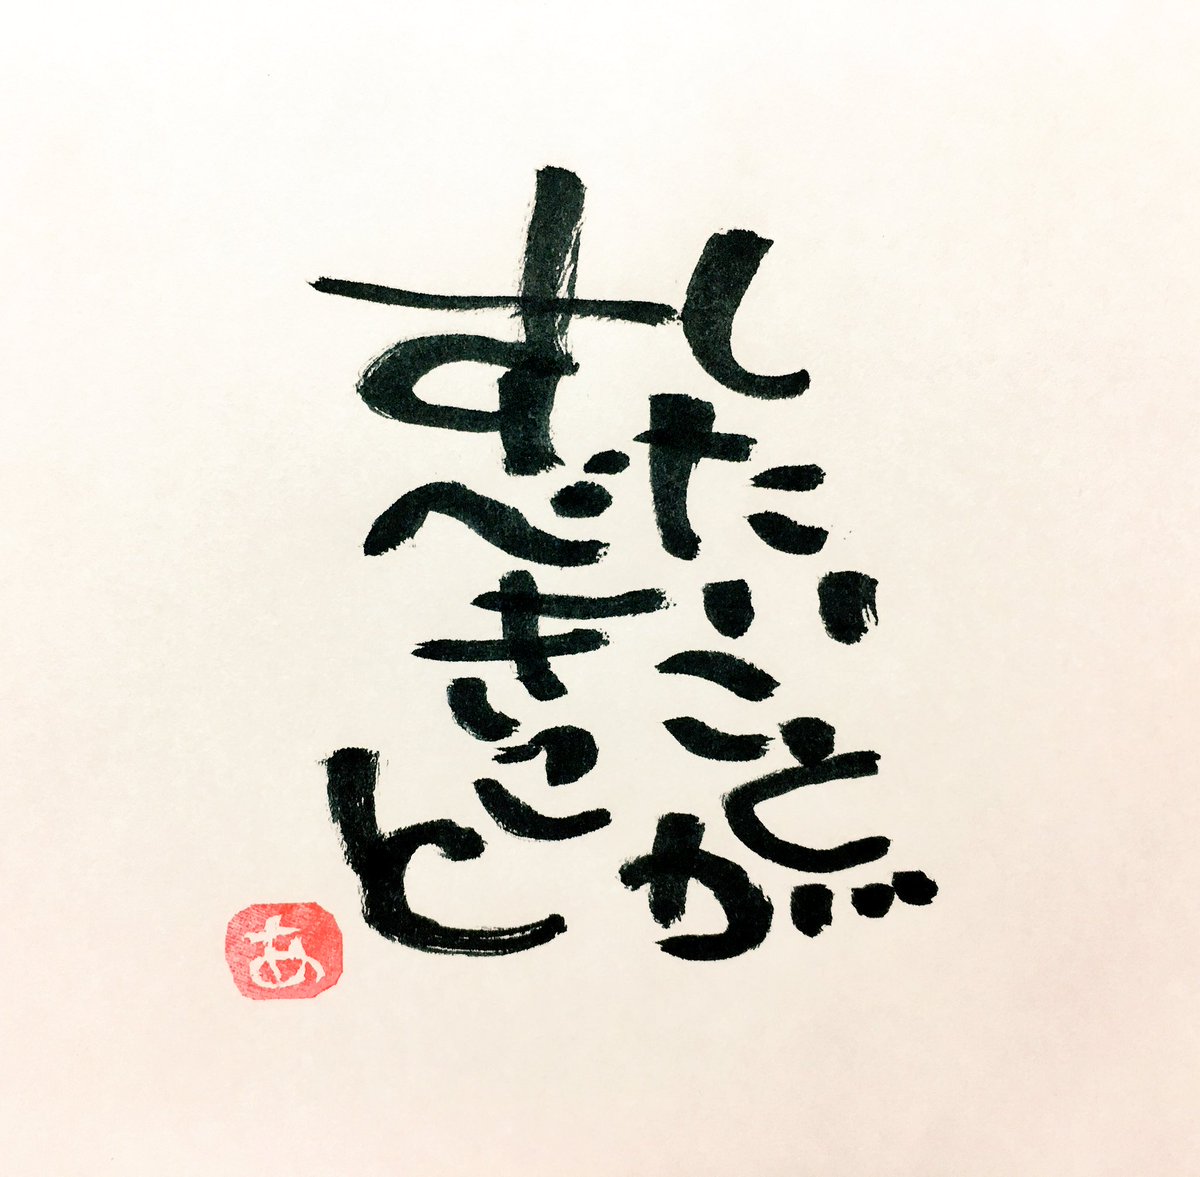 したいことが
すべきこと
あ